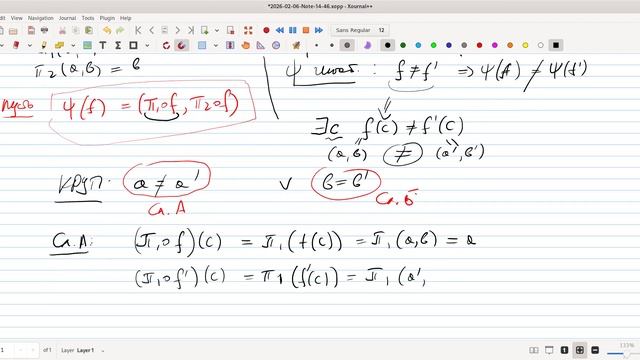 *2026-02-06-Note-14-46.xopp - Xournal++
Edit View Navigation Journal Tools Plugin Help
Sans Regular 12
π₂(a,b) = b
ψ инат. : f ≠ f' ⇒ ψ(f) ≠ ψ(f')
Пусть ψ(f) = (π₁∘f, π₂∘f)
∃c f(c) ≠ f'(c)
(a,b) ≠ (a',b')
a ≠ a' ∨ b = b'
Сл. А Сл. Б
Сл. А: (π₁∘f)(c) = π₁(f(c)) = π₁(a,b) = a
(π₁∘f')(c) = π₁(f'(c)) = π₁(a',
1 of 1 Layer Layer 1 133%